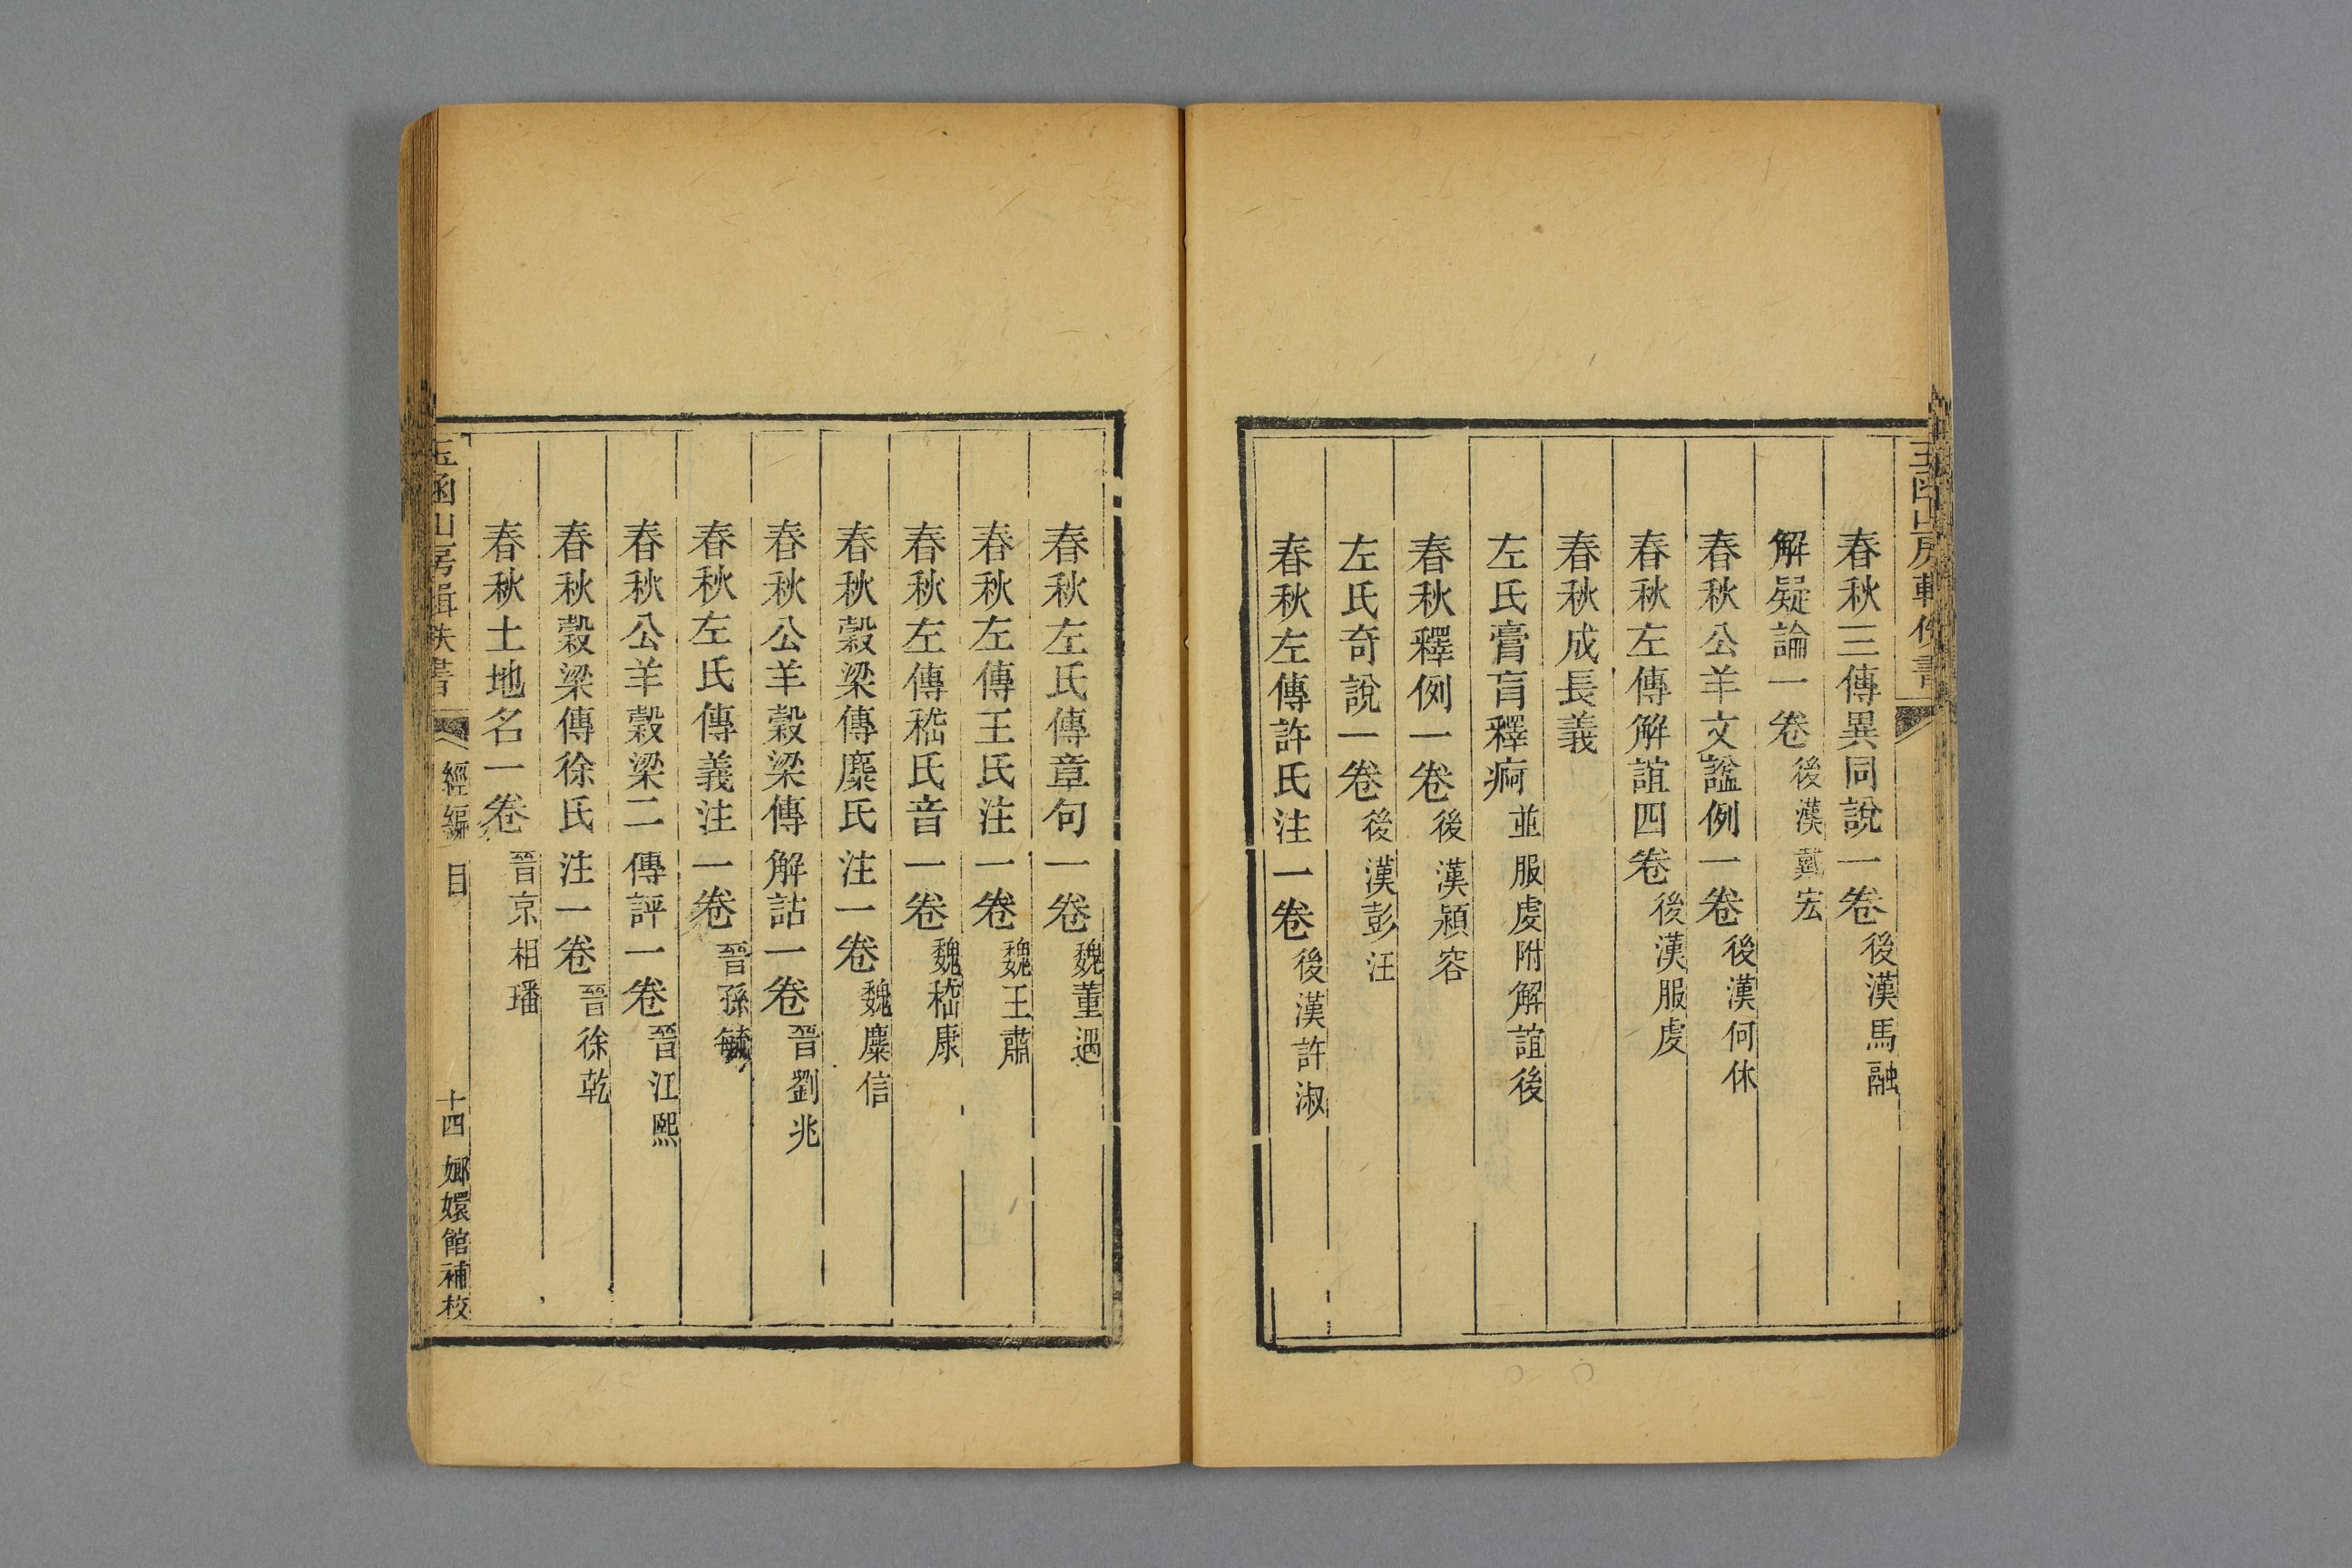 春秋三傳異同說一卷後漢馬融
解疑論一卷後漢戴宏
春秋公羊文謚例一卷後漢何休
春秋左傳解誼四卷後漢服虔
春秋成長義
左氏膏肓釋痾並服虔附解誼後
春秋釋例一卷後漢潁容
左氏奇說一卷後漢彭汪
春秋左傳許氏注一卷後漢許淑
春秋左氏傳章句一卷魏董遇
春秋左傳王氏注一卷魏王肅
春秋左傳嵇氏音一卷魏嵇康
春秋穀梁傳麋氏注一卷魏麋信
春秋公羊穀梁傳解詁一卷晉劉兆
春秋左氏傳義注一卷晉孫毓
春秋公羊穀梁二傳評一卷晉江熙
春秋穀梁傳徐氏注一卷晉徐乾
春秋土地名一卷晉京相璠
玉函山房輯佚書 經編 目 十四 嫏嬛館補校